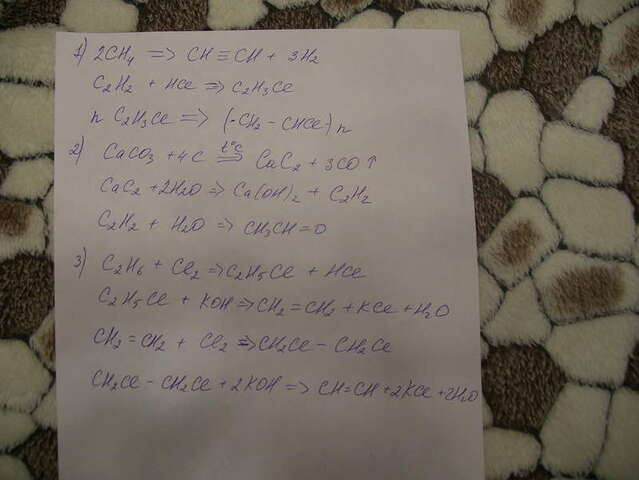 1) 2CH4 => CH≡CH + 3H2
C2H2 + HCl => C2H3Cl
n C2H3Cl => (-CH2 - CHCl)n
2) CaCO3 + 4C t°C => CaC2 + 3CO↑
CaC2 + 2H2O => Ca(OH)2 + C2H2
C2H2 + H2O => CH3CH=O
3) C2H6 + Cl2 => C2H5Cl + HCl
C2H5Cl + KOH => CH2=CH2 + KCl + H2O
CH2=CH2 + Cl2 => CH2Cl - CH2Cl
CH2Cl - CH2Cl + 2KOH => CH≡CH + 2KCl + 2H2O